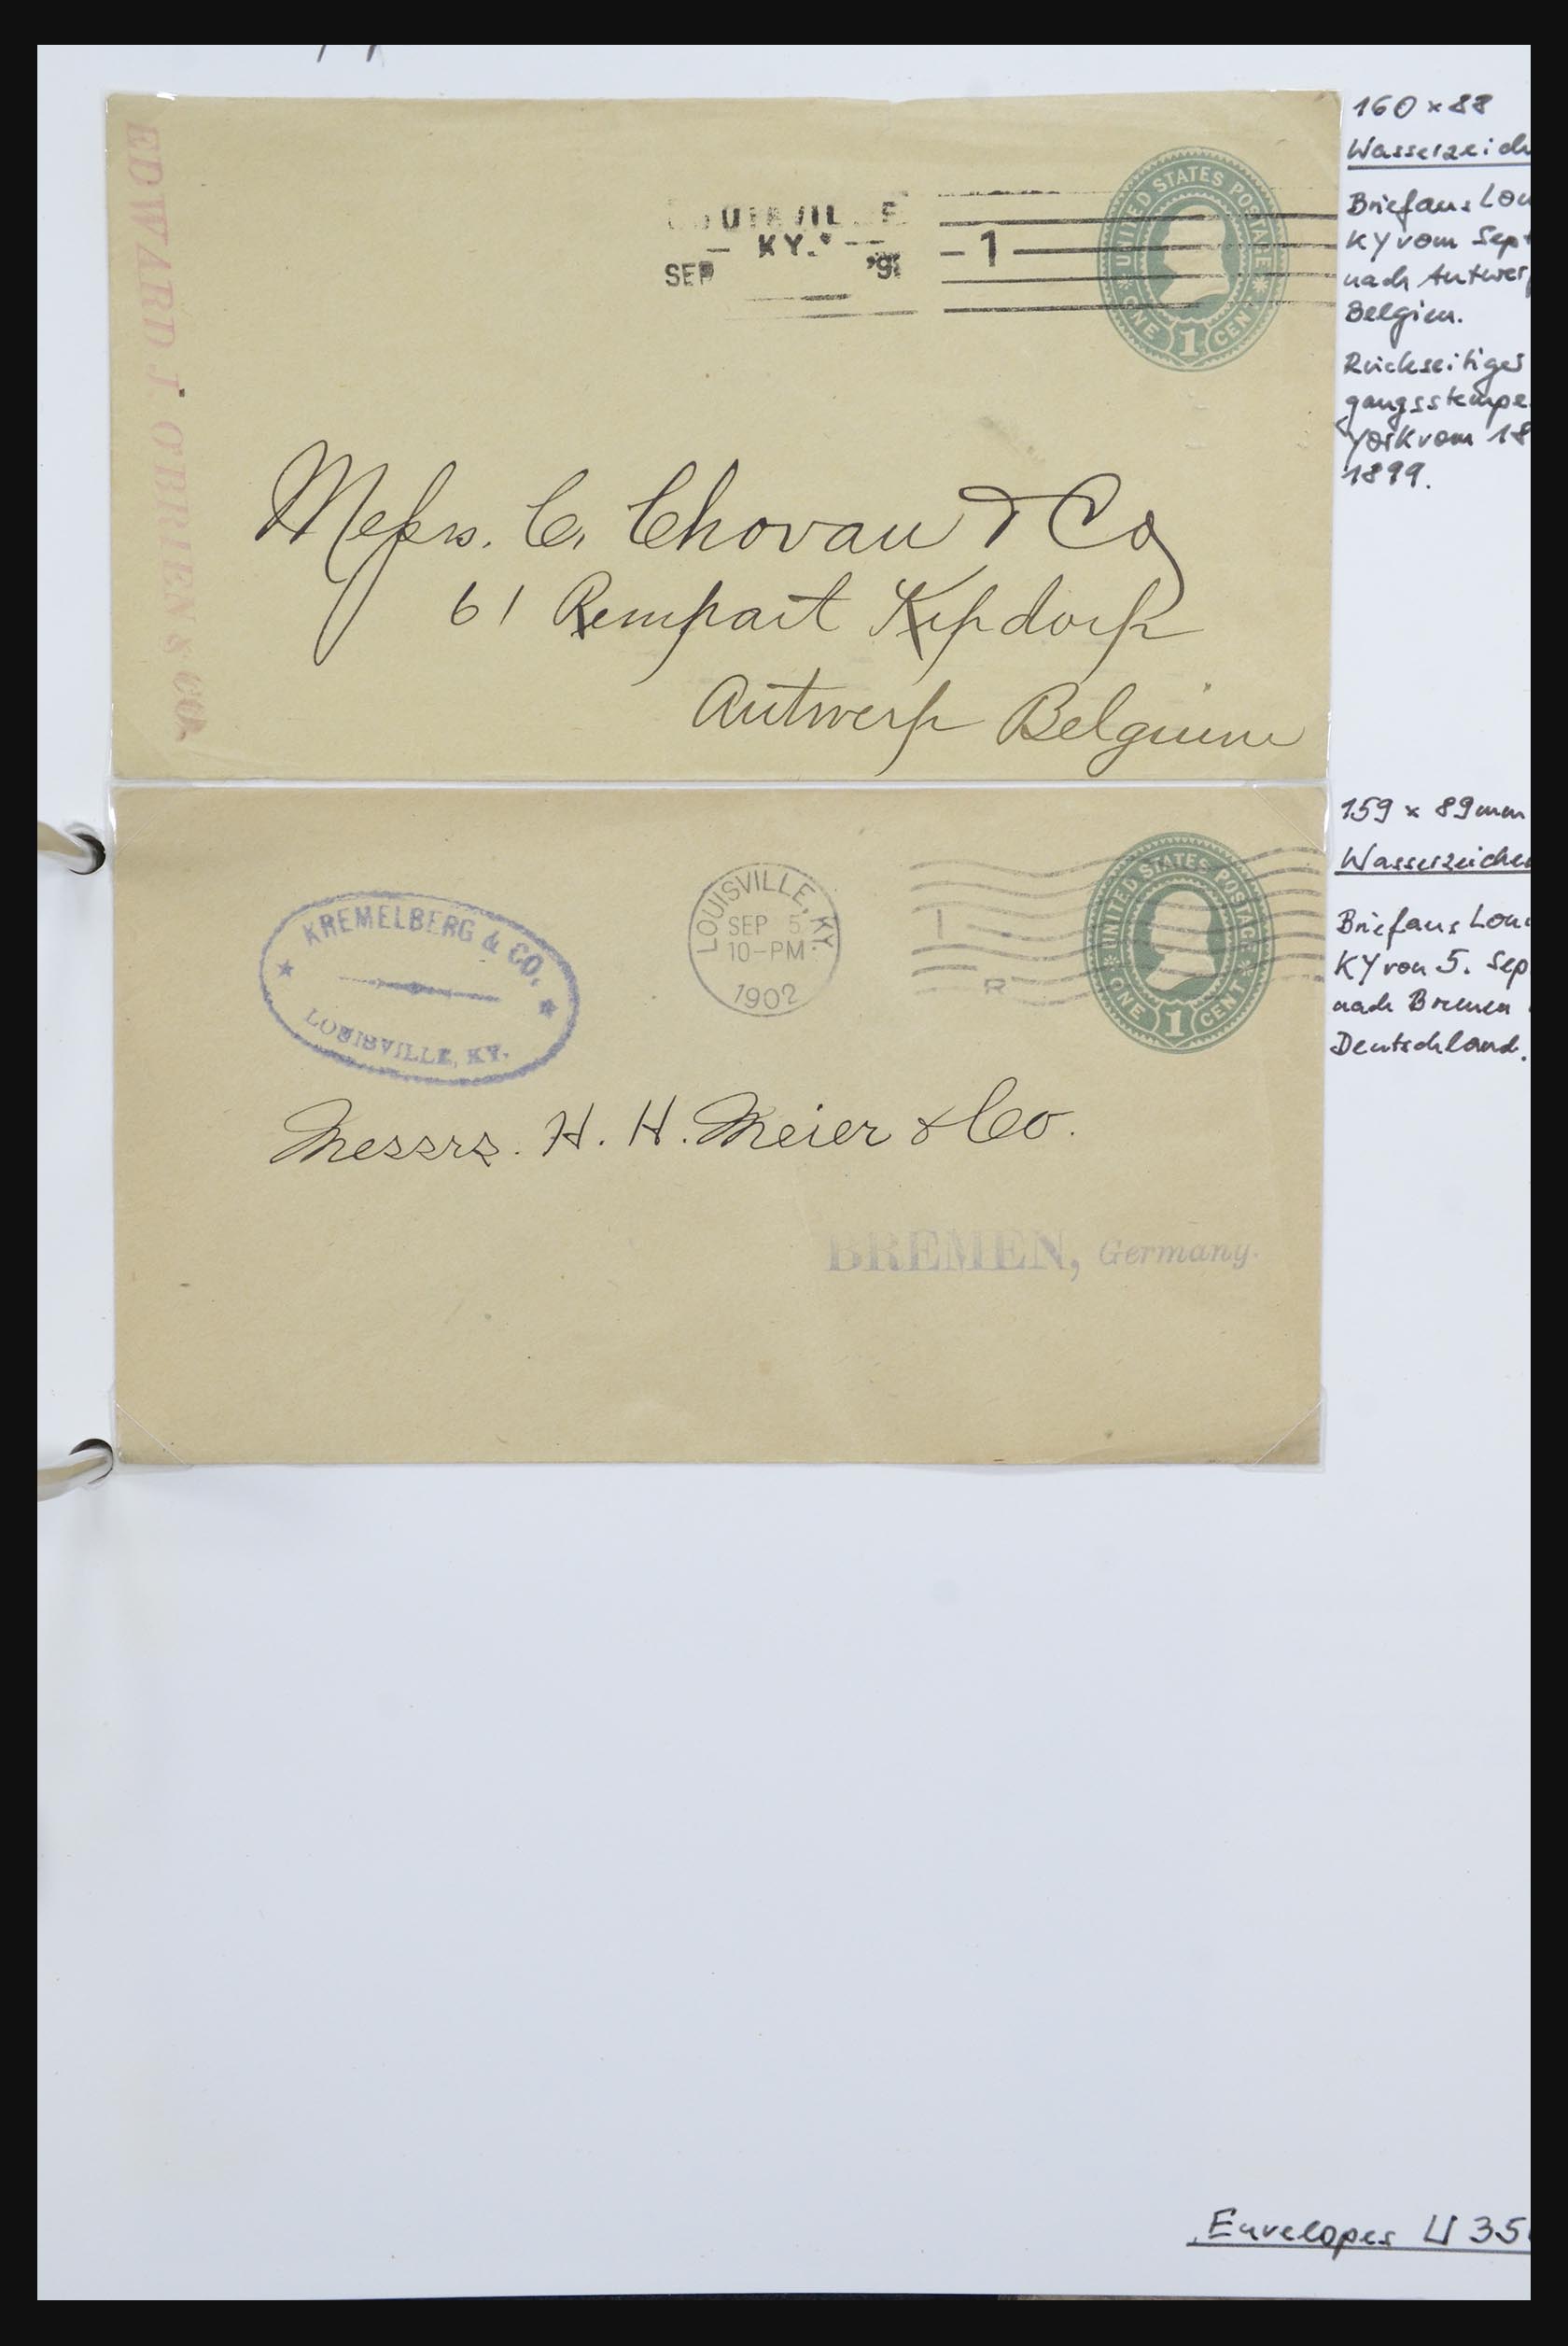 EDWARD J. O'BRIEN & CO.
KY.
SEP
1
UNITED STATES POSTAGE
ONE 1 CENT
Messrs. C. Chovau & Co
61 Rempart Kipdorp
Antwerp Belgium
160 x 88
Wasserzeich
Brief aus Lou
KY vom Sept
nach Antwer
Belgien.
Rückseitiges
gangsstempe
York vom 18
1899.
KREMELBERG & CO.
LOUISVILLE, KY.
LOUISVILLE, KY.
SEP 5
10-PM
1902
1
R
UNITED STATES POSTAGE
ONE 1 CENT
Messrs. H. H. Meier & Co.
BREMEN, Germany.
159 x 89 mm
Wasserzeichen
Brief aus Lou
KY von 5. Sep
nach Bremen
Deutschland.
Envelopes U 35